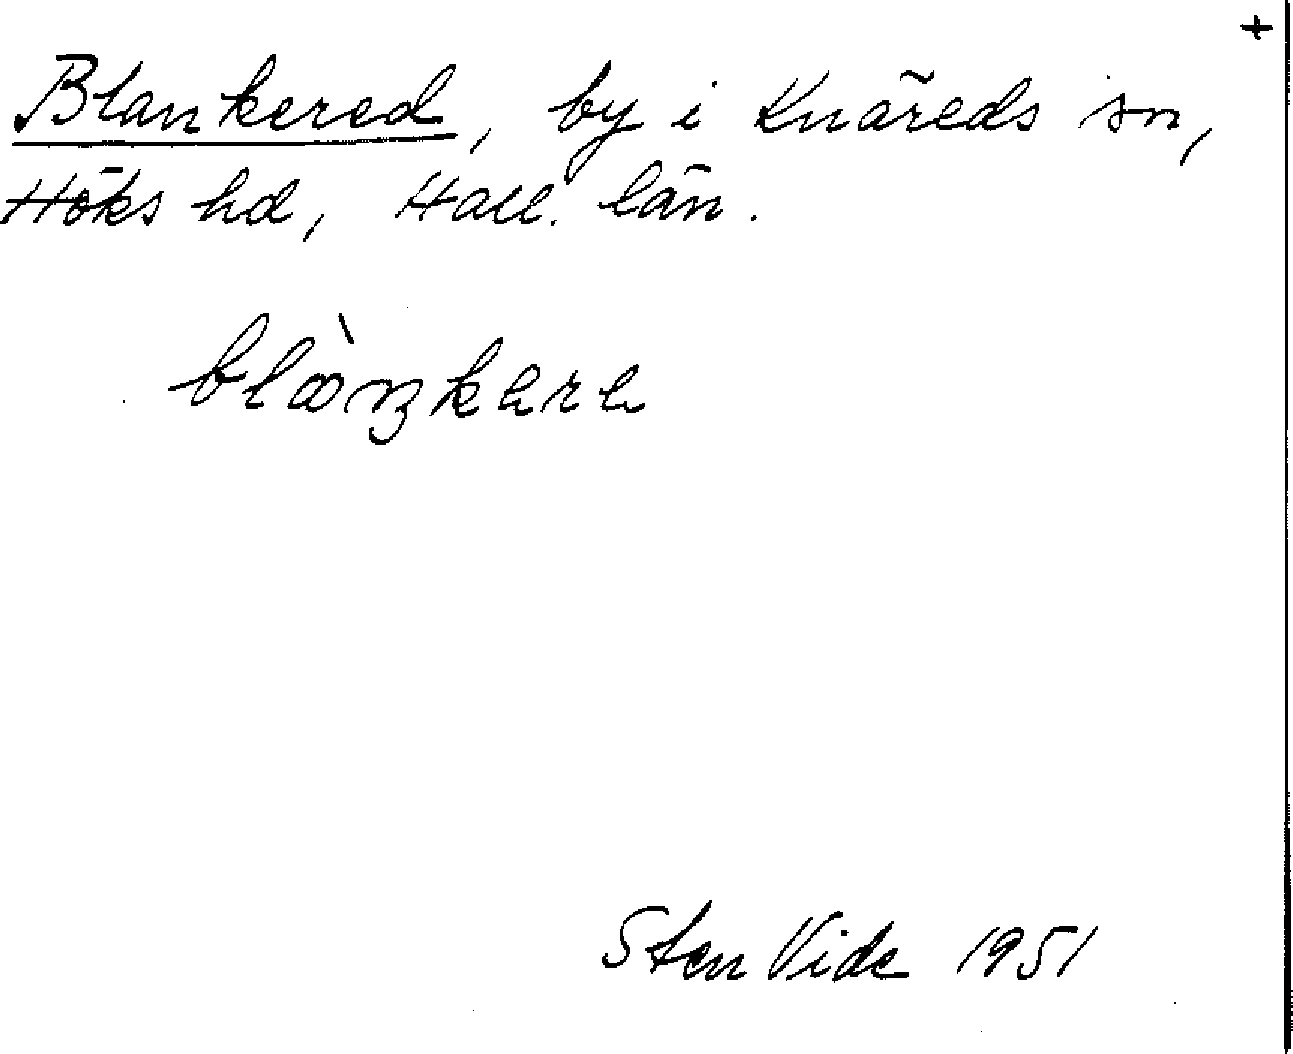 +
Blankered, by i Knäreds sn,
Höks hd, Hall. län.
blàŋkara
Sten Vide 1951